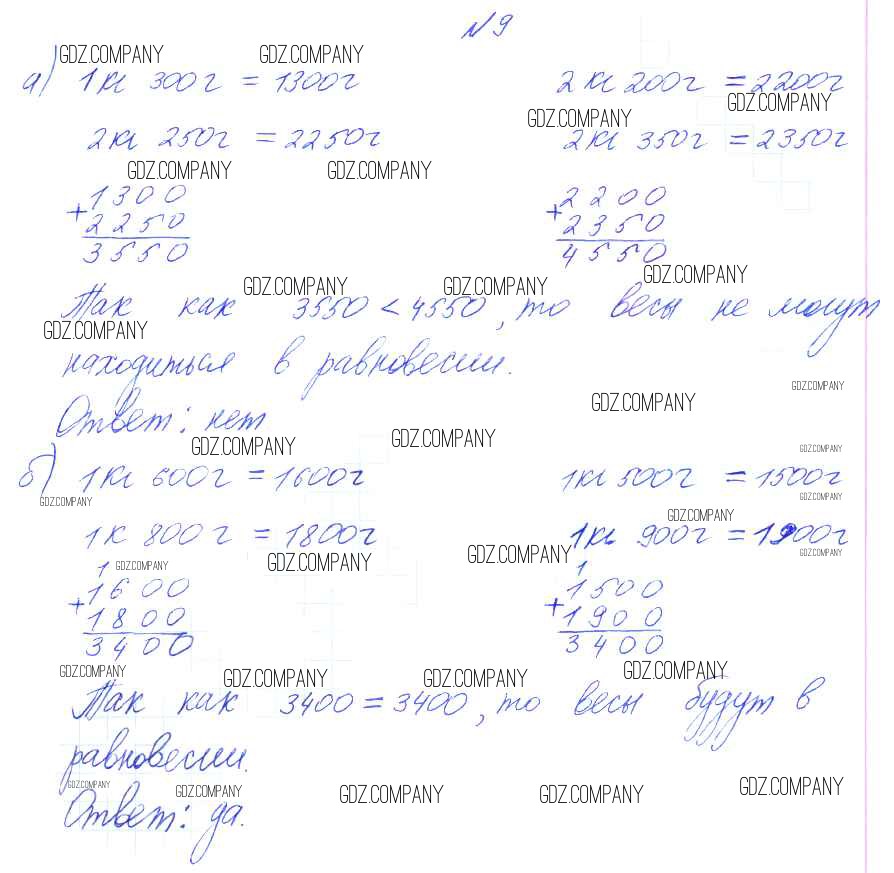 №9
GDZ.COMPANY GDZ.COMPANY
а) 1кг 300г = 1300г 2кг 200г = 2200г
GDZ.COMPANY GDZ.COMPANY
2кг 250г = 2250г 2кг 350г = 2350г
GDZ.COMPANY GDZ.COMPANY
1300 2200
+ +
2250 2350
3550 4550
GDZ.COMPANY GDZ.COMPANY GDZ.COMPANY
Так как 3550 < 4550, то весы не могут
GDZ.COMPANY
находиться в равновесии.
GDZ.COMPANY GDZ.COMPANY
Ответ: нет
GDZ.COMPANY GDZ.COMPANY GDZ.COMPANY
б) 1кг 600г = 1600г 1кг 500г = 1500г
GDZ.COMPANY GDZ.COMPANY GDZ.COMPANY
1к 800г = 1800г 1кг 900г = 1900г
GDZ.COMPANY GDZ.COMPANY GDZ.COMPANY GDZ.COMPANY
1 1
1600 1500
+ +
1800 1900
3400 3400
GDZ.COMPANY GDZ.COMPANY GDZ.COMPANY GDZ.COMPANY
Так как 3400 = 3400, то весы будут в
равновесии.
GDZ.COMPANY GDZ.COMPANY GDZ.COMPANY GDZ.COMPANY GDZ.COMPANY
Ответ: да.